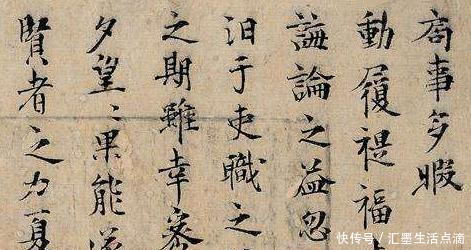 局事多暇
動履禔福
誨論之益忽
汨于吏職之
之期雖幸密
夕望〻果能遂
賢者之力夏
快传号／汇墨生活点滴